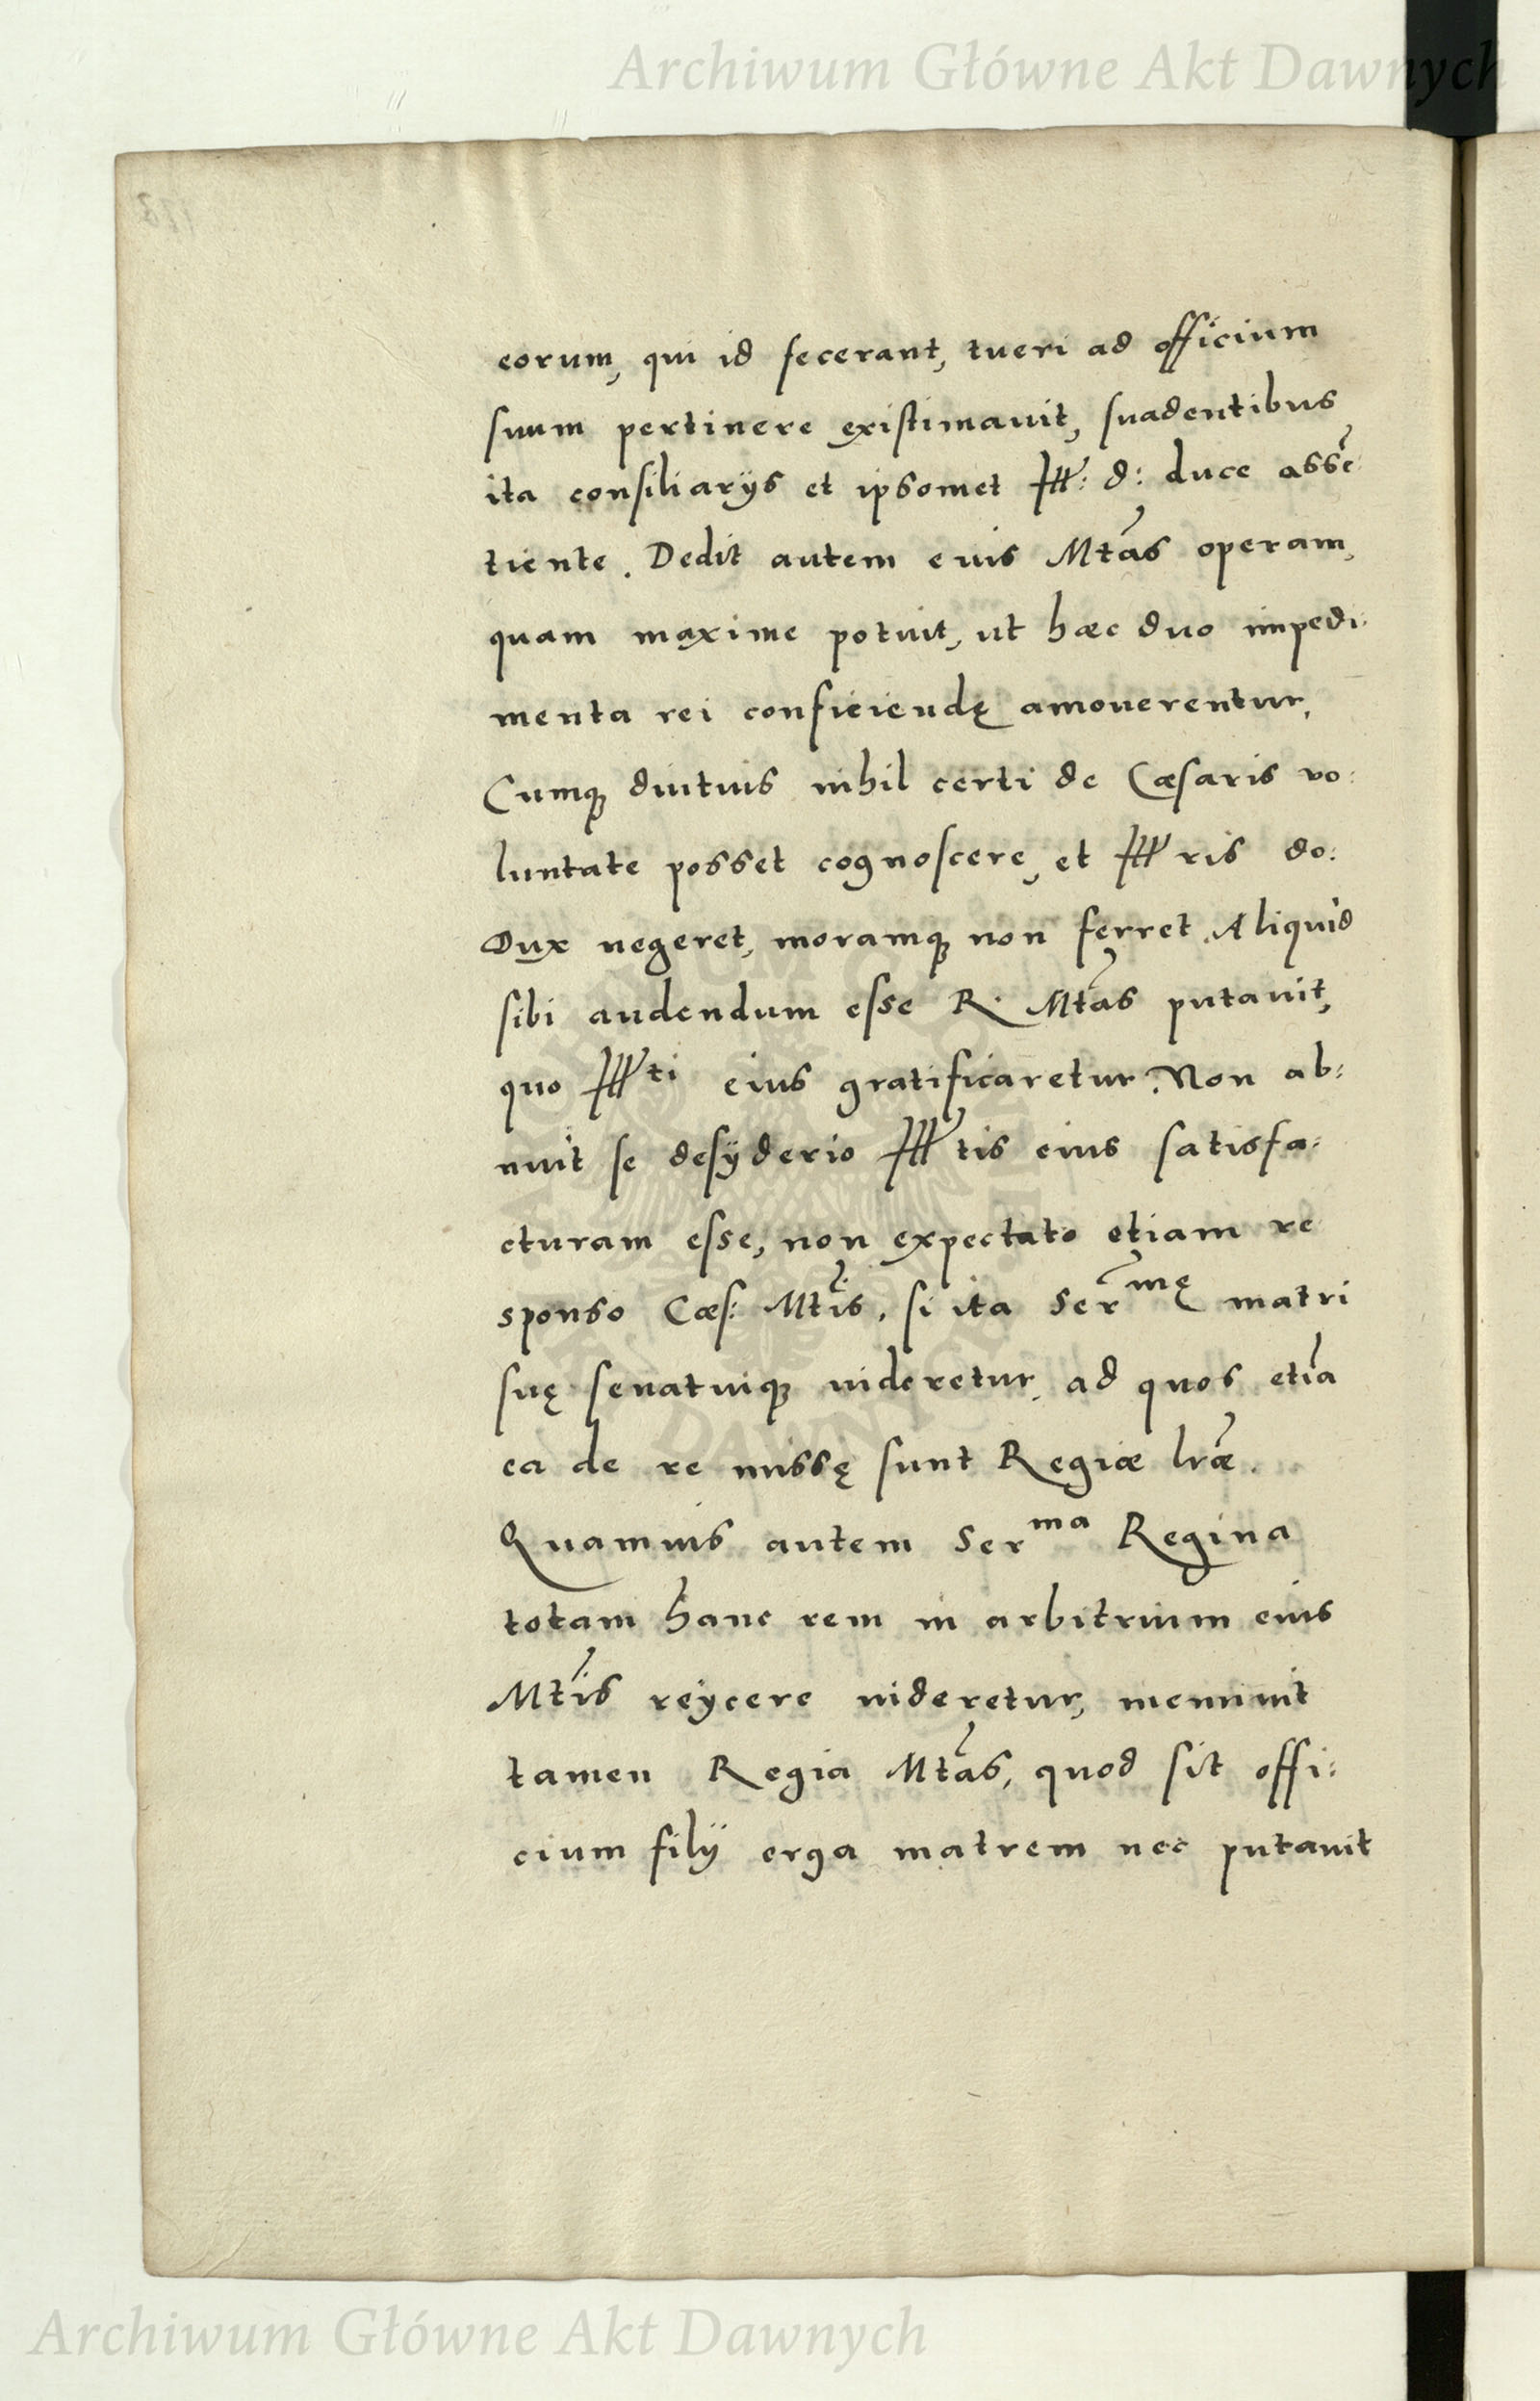 Archiwum Główne Akt Dawnych
eorum, qui id fecerant, tueri ad officium
suum pertinere existimauit, suadentibus
ita consiliarijs et ipsomet Ill: d: duce assẽ:
tiente. Dedit autem euis Mtas operam,
quam maxime potuit, ut haec duo impedi:
menta rei conficiendę amouerentur,
Cumq; diutius nihil certi de Cæsaris vo:
luntate posset cognoscere, et Ill ris do:
Dux vrgeret, moramq; non ferret. Aliquid
sibi audendum esse R. Mtas putauit,
quo Ill ti eius gratificaretur. Non ab:
nuit se desyderio Ill tis eius satisfa:
cturam esse, non expectato etiam re
sponso Cæs: Mtis, si ita Sermę matri
suę senatuiq; uideretur, ad quos etiã
ea de re missę sunt Regiæ lræ.
Quamuis autem Serma Regina
totam hanc rem in arbitrium eius
Mtis reijcere uideretur, meminit
tamen Regia Mtas, quod sit offi:
cium filij erga matrem nec putauit
Archiwum Główne Akt Dawnych